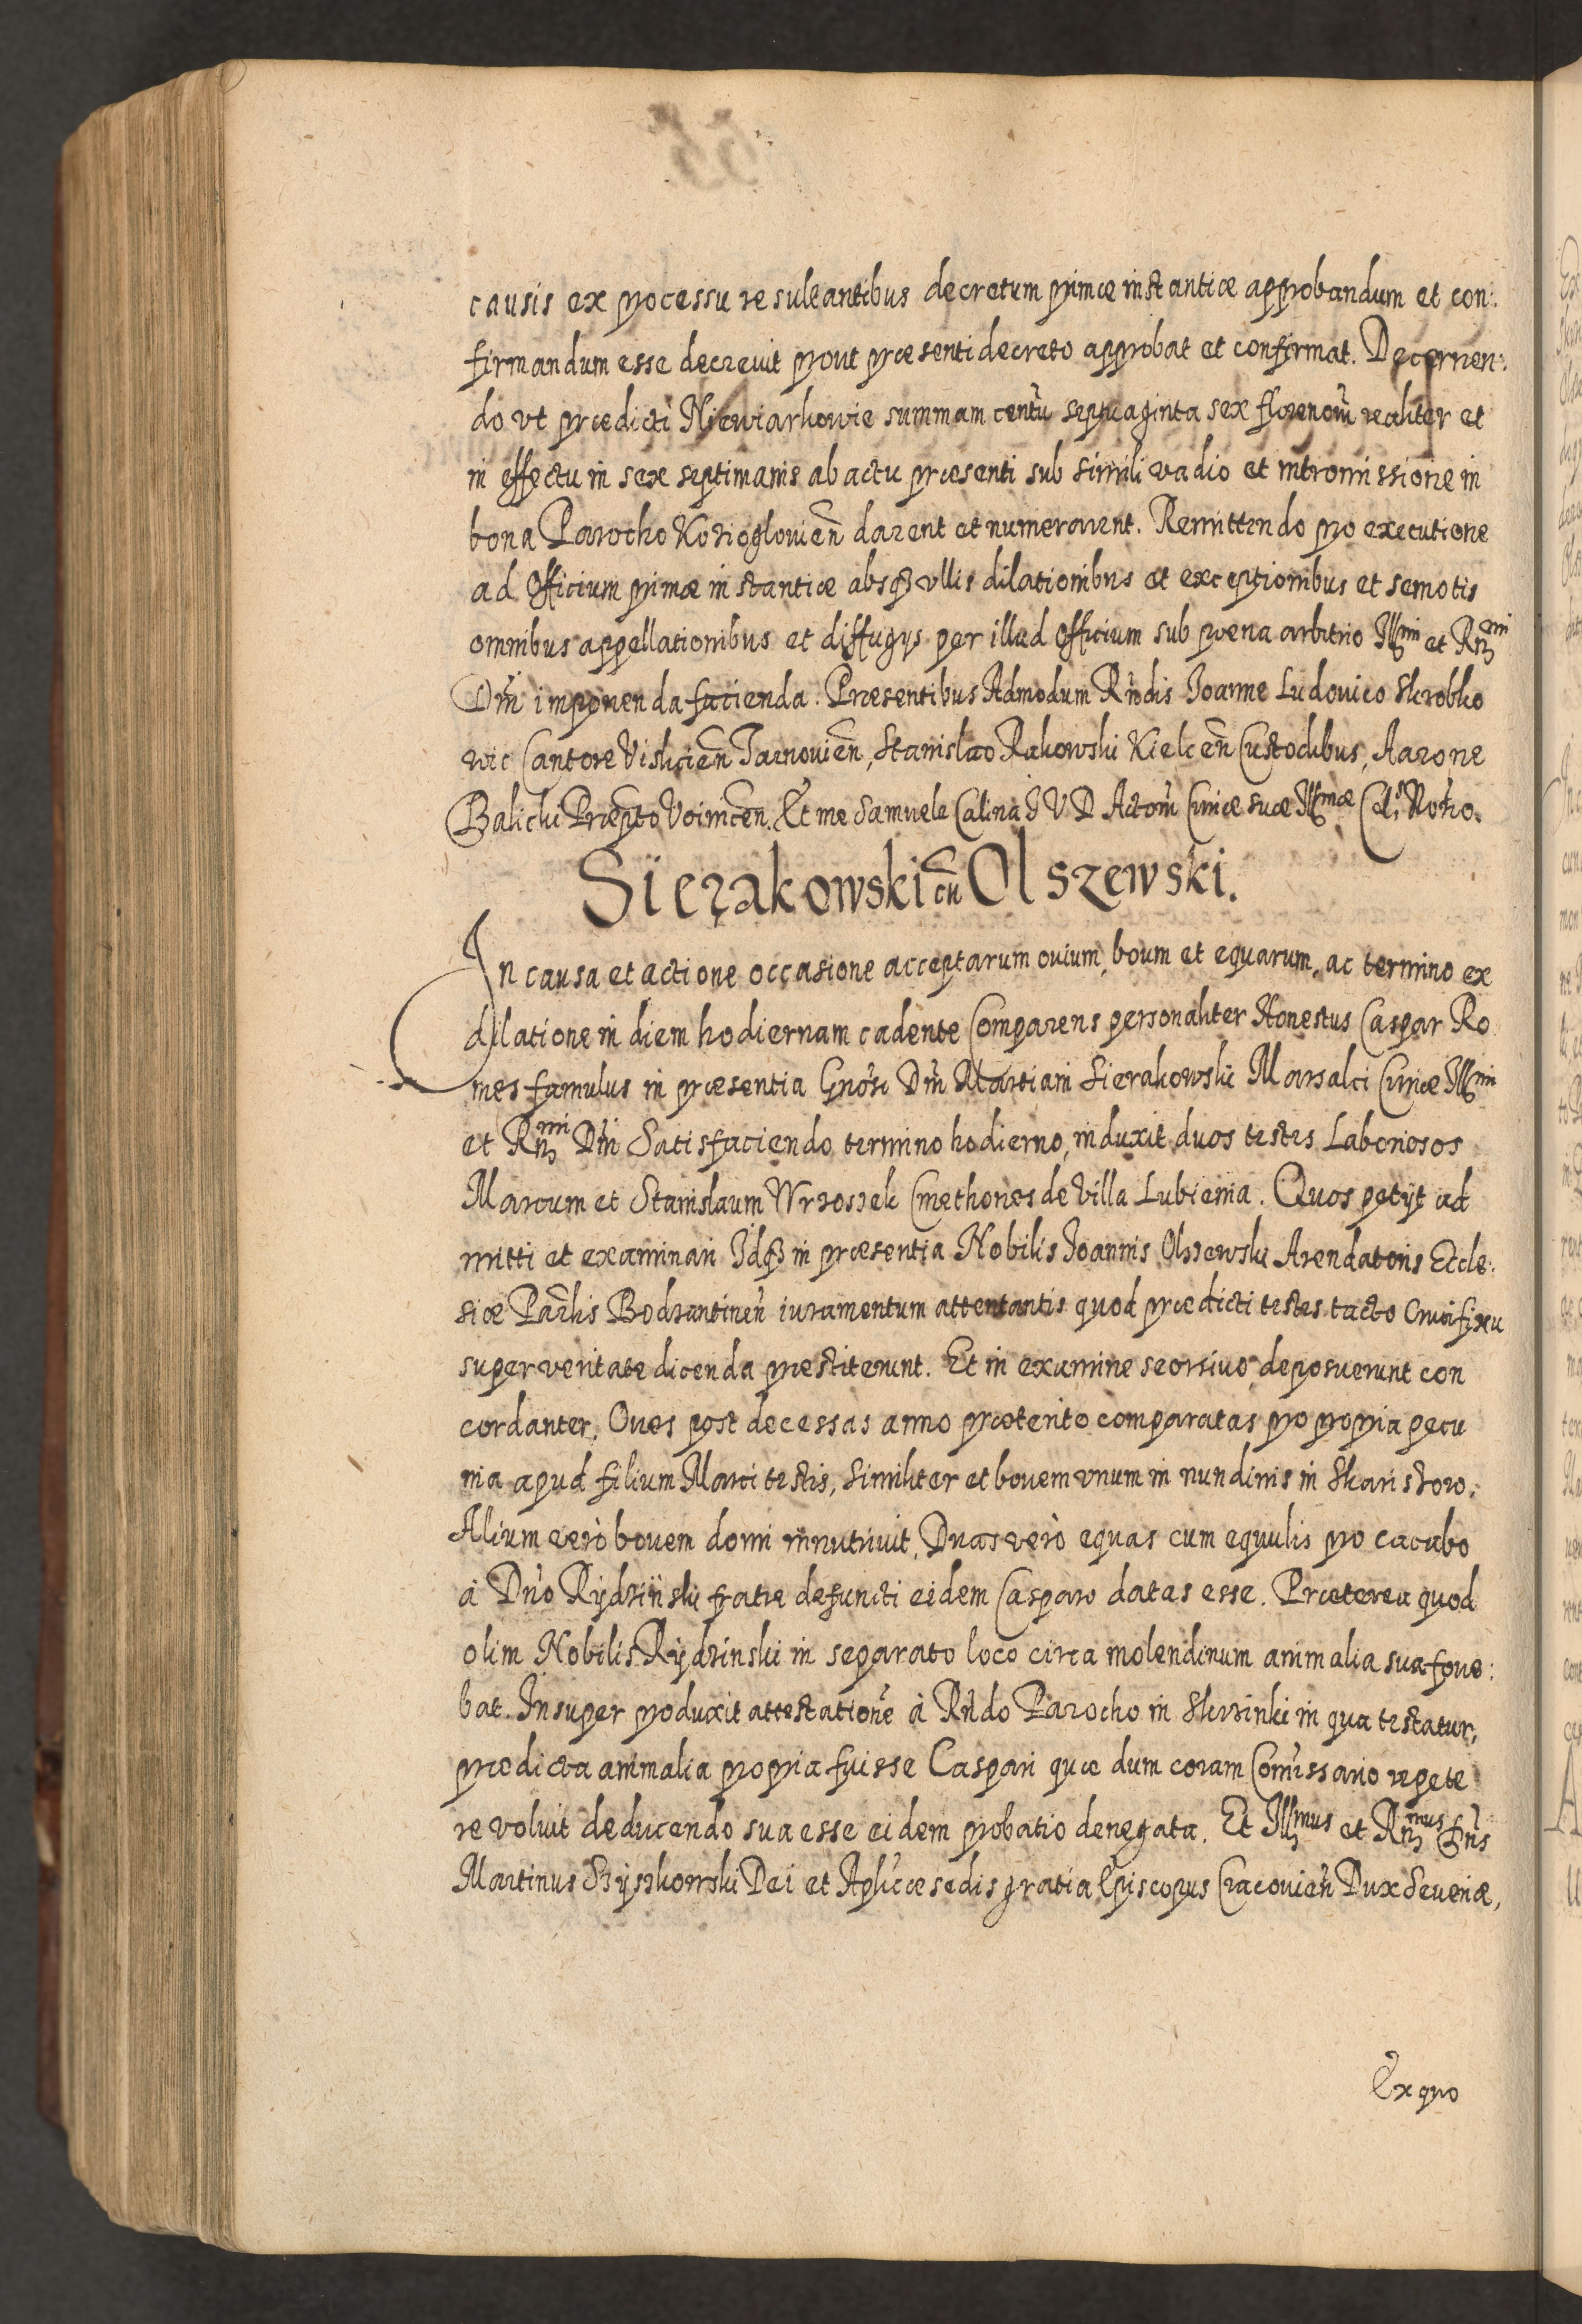 causis ex processu resultantibus decretum primæ instantiæ approbandum et con:
firmandum esse decrevit prout præsenti decreto approbat et confirmat. Decernen:
do vt prædicti Niewiarkowie summam centũ septuaginta sex florenor̃ realiter et
in effectu in sex septimanis ab actu præsenti sub simili vadio et intromissione in
bona Parocho Kozioglouieñ darent et numerarent. Remittendo pro executione
ad Officium primæ instantiæ absqȝ vllis dilationibus et exceptionibus et semotis
omnibus appellationibus et diffugys per illud Officium sub poena arbitrio Illmi et Rmi
Dñi imponenda facienda. Præsentibus Admodum Rñdis Ioanne Ludouico Skrobko
wic Cantore Vislicieñ Tarnouieñ, Stanislao Rakowski Kielceñ Custodibus, Aarone
Balicki Præpto Voiniceñ. Et me Samuele Calina I V D Actor̃ Curiæ suæ Illmæ Cels Notrio.
Sierakowski cũ Olszewski.
In causa et actione occasione acceptarum ouium, boum et equarum, ac termino ex
dilatione in diem hodiernam cadente Comparens personaliter Honestus Caspar Ro
mes famulus in præsentia Gnosi Dñi Martiani Sierakowski Marsalci Curiæ Illmi
et Rmi Dñi Satisfaciendo termino hodierno, induxit duos testes Laboriosos
Marcum et Stanislaum Wrzoszek Cmethones de Villa Lubienia. Quos petijt ad
mitti et examinari Idqȝ in præsentia Nobilis Ioannis Olszewski Arendatoris Eccle:
siæ Parlis Bodzantineñ iuramentum attentantis quod prædicti testes tacto Crucifixu
super veritate dicenda præstiterunt. Et in examine seorsiuo deposuerunt con
cordanter, Oues post decessas anno præterito comparatas pro propria pecu
nia apud filium Marci testis, similiter et bouem vnum in nundinis in Skaristow.
Alium verò bouem domi innutriuit, Duas verò equas cum equulis pro cacabo
à Dño Rydziński fratre defuncti eidem Casparo datas esse. Præterea quod
olim Nobilis Rydzinski in separato loco circa molendinum animalia sua foue:
bat. Insuper produxit attestationẽ à Rñdo Parocho in Skrzinki in qua testatur,
prædicta animalia propria fuisse Caspari quæ dum coram Comissario repete
re voluit deducendo sua esse eidem probatio denegata. Et Illmus et Rmus Dñs
Martinus Szyszkowski Dei et Aplicæ sedis gratia Episcopus Cracouieñ Dux Seueriæ,
Ex quo